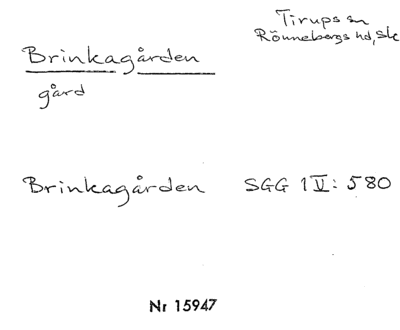 Tirups sn
Rönnebergs hd, Sk
Brinkagården
gård
Brinkagården SGG 1 V: 580
Nr 15947